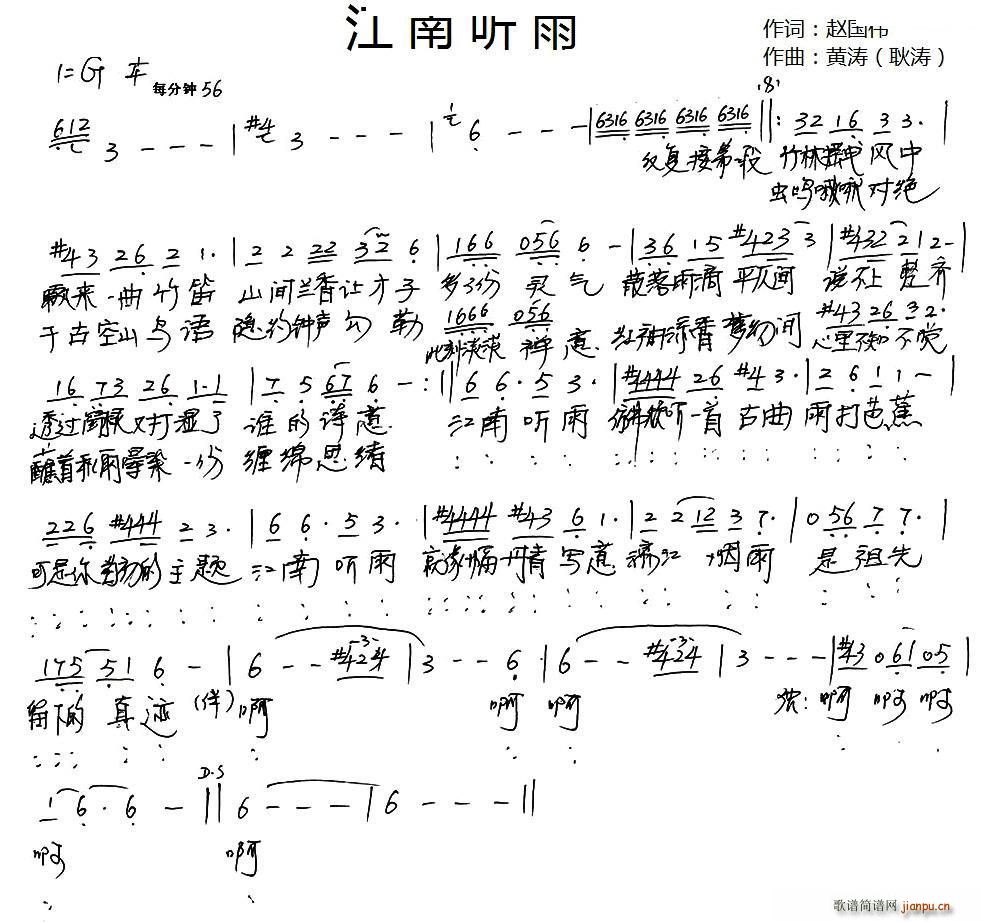 江南听雨
作词：赵国伟
作曲：黄涛（耿涛）
1=G
每分钟56
612 3 - - - | #4 3 - - - | 1 6 - - - | 6316 6316 6316 6316 ||: 32 16 3 3· |
竹林 风中
虫鸣 对绝
#43 26 2 1· | 2 2 22 32 6 | 166 056 6 - | 36 15 #423 3 | #432 21 2 - |
飘来一曲竹笛 山间兰香让才子 多了份 灵气 散落雨滴 平仄间 说不上 整齐
千古空山鸟语 隐约钟声勾勒 1666 056 #43 26 32·
此刻淡淡 禅意 红袖添香梦幻间 心里不知不觉
16 73 26 1·1 | 7 5 67 6 - :|| 6 6· 5 3· | #444 26 #4 3· | 2 6 1 1 - |
透过 又打湿了 谁的诗意 江南听雨 听一首古曲 雨打芭蕉
蘸着 一份 缠绵思绪
226 #444 2 3· | 6 6· 5 3· | #4444 #43 6 1· | 2 2 12 3 7· | 0 56 7 7· |
可是你 的主题 江南听雨 幅丹青写意 烟雨 是祖先
175 51 6 - | 6 - - #424 | 3 - - 6 | 6 - - #424 | 3 - - - | #43 061 05 |
留下的 真迹 (伴) 啊 啊 啊 啊 啊 啊
1 6· 6 - || 6 - - - | 6 - - - ||
D.S
啊 啊
歌谱简谱网
jianpu.cn